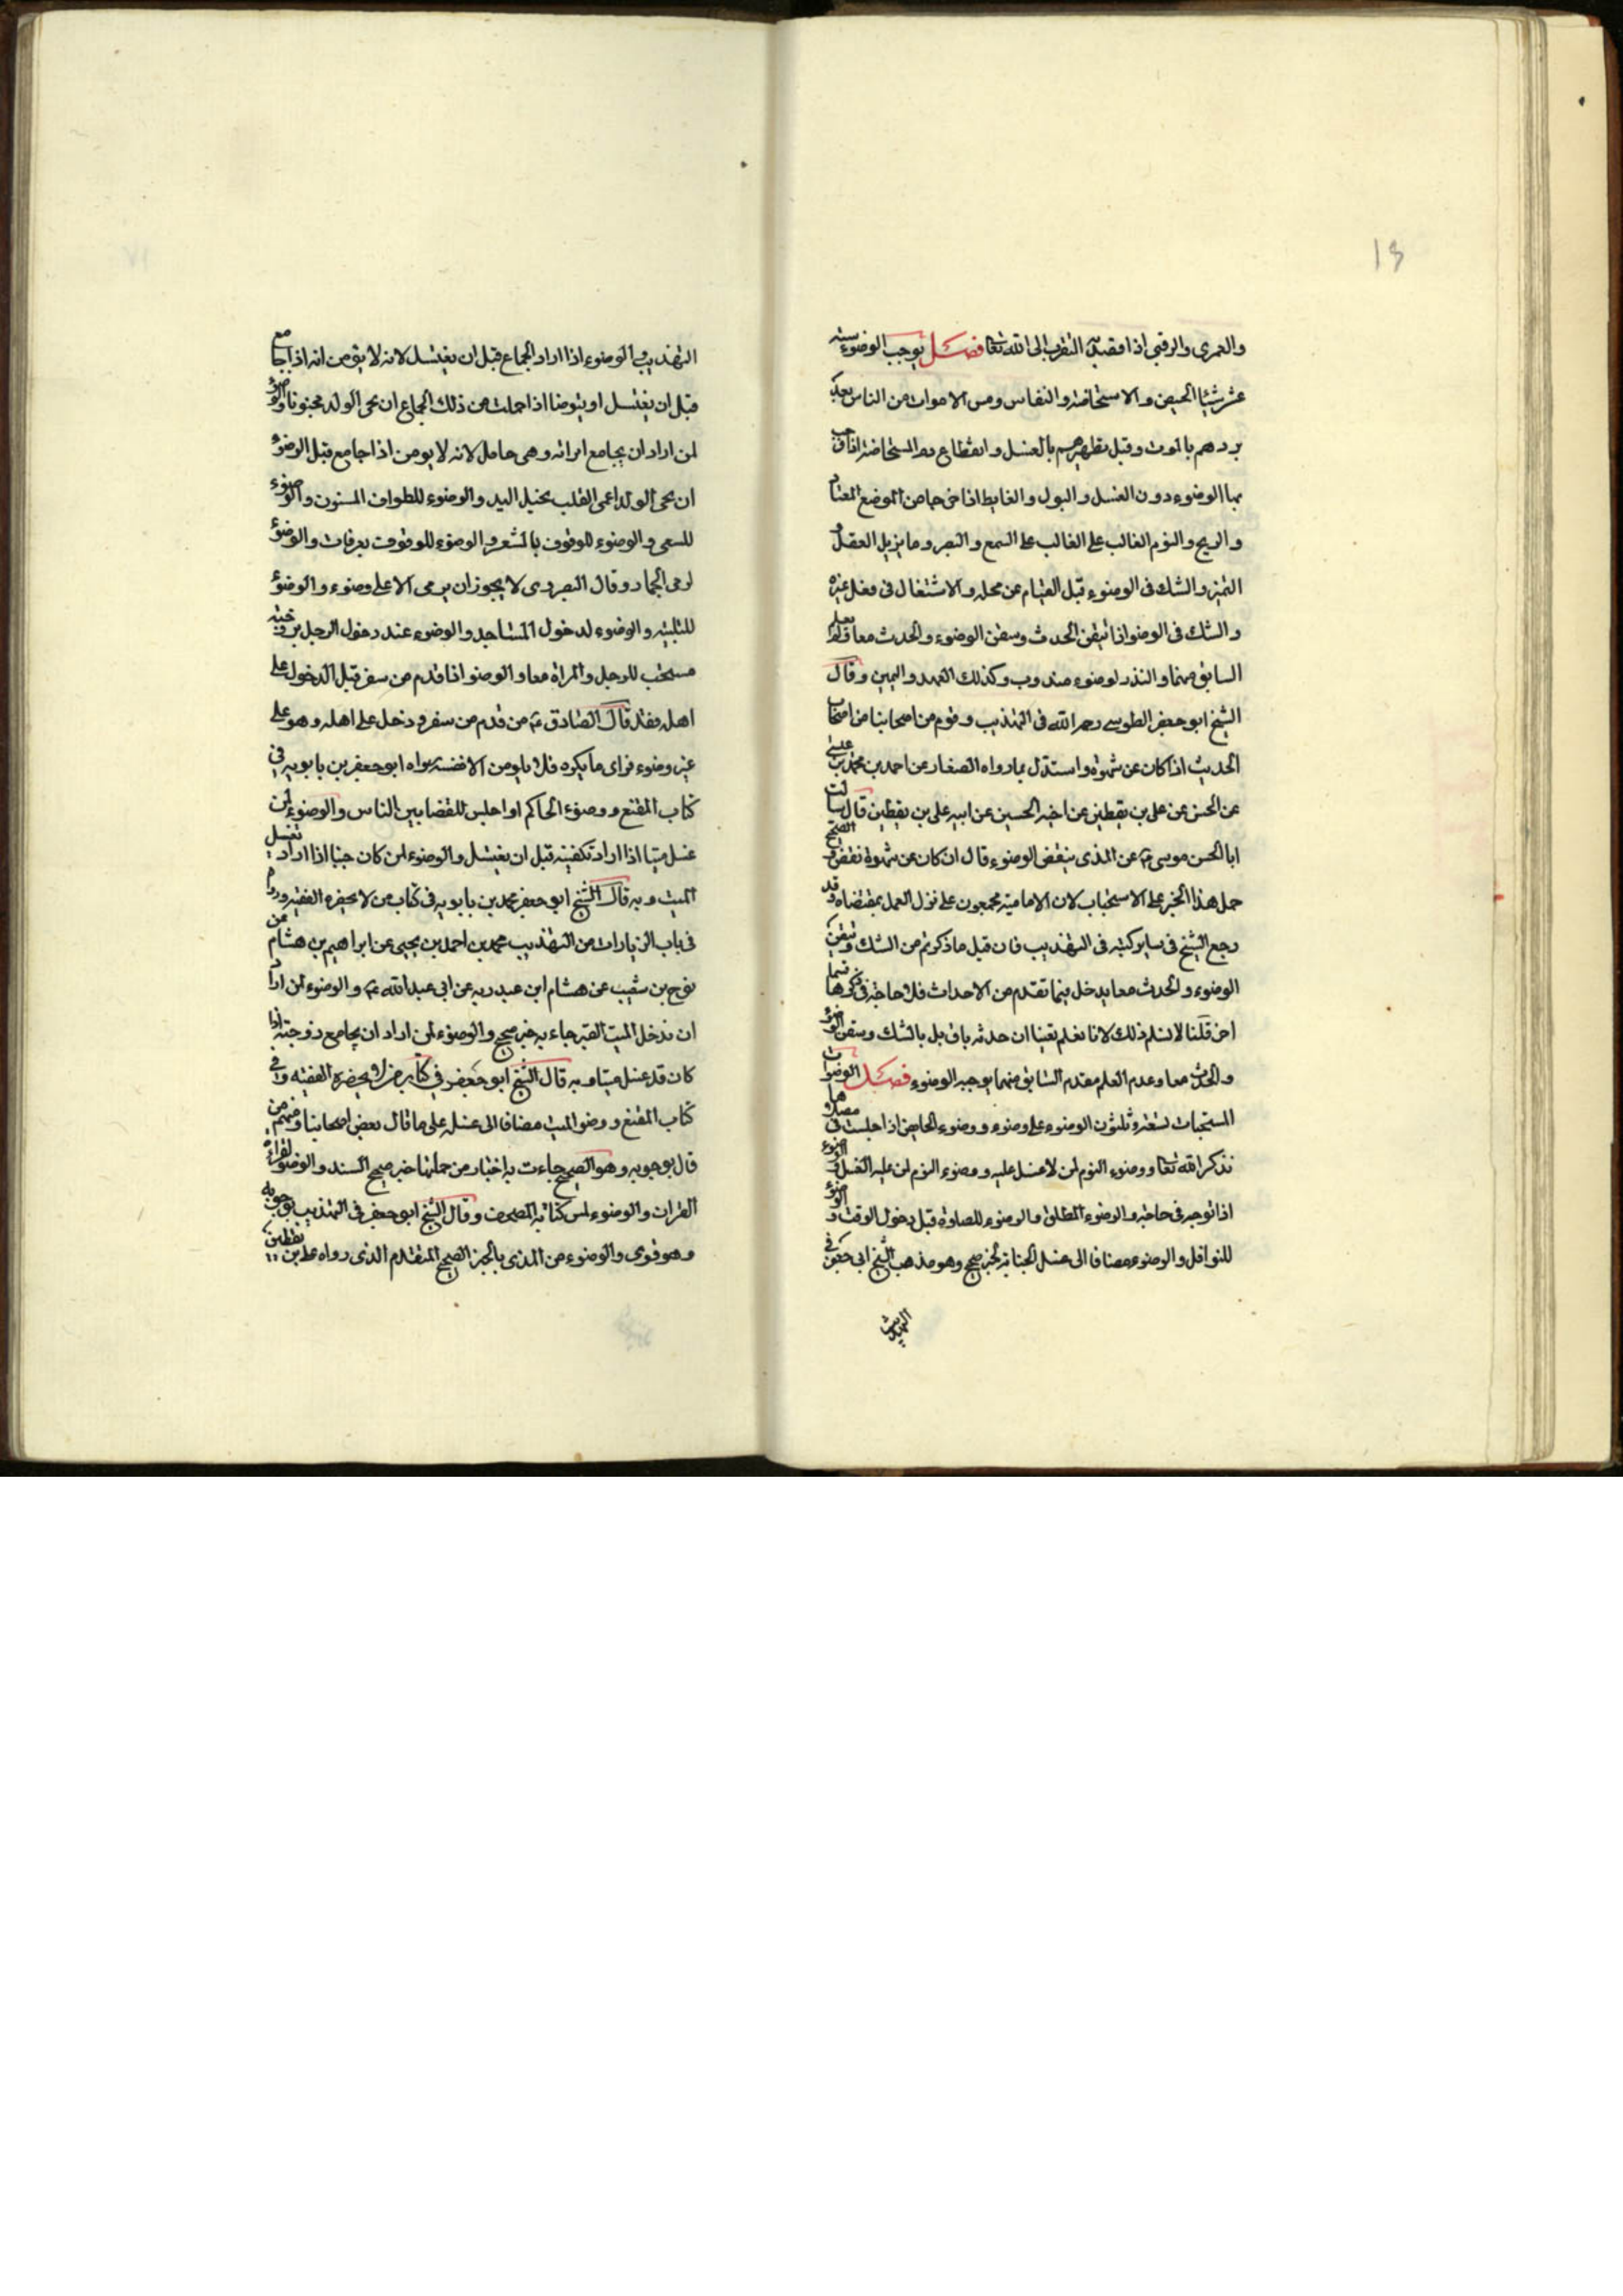 13
والعمرى والرقبى اذا قصد التقرب الى الله تعا فصل يوجب الوضوء ستة
عشر شيئا الحيض والاستحاضة والنفاس ومس الاموات من الناس بعد
بردهم بالموت وقبل تطهيرهم بالغسل وانقطاع دم المستحاضة اذا
بها الوضوء دون الغسل والبول والغايط اذا خرجا من الموضع المعتاد
والريح والنوم الغالب على السمع والبصر وما يزيل العقل و
التميز والشك فى الوضوء قبل القيام عن محله والاشتغال فى فعل غيره
والشك فى الوضوء اذا تيقن الحدث وتيقن الوضوء والحدث معا ولم يعلم
السابق منهما والنذر لوضوء مندوب وكذلك العهد واليمين وقال
الشيخ ابو جعفر الطوسى رحمه الله فى التهذيب وقوم من اصحابنا من اصحاب
الحديث اذا كان عن شهوة واستدل بما رواه الصفار عن احمد بن محمد بن عيسى
عن الحسن عن على بن يقطين عن اخيه الحسين عن ابيه على بن يقطين قال سالت
ابا الحسن موسى ع عن المذى ينقض الوضوء قال ان كان عن شهوة نقض والصحيح
حمل هذا الخبر على الاستحباب لان الامامية مجمعون على ترك العمل بمقتضاه وقد
رجع الشيخ فى ساير كتبه فى التهذيب فان قيل ما ذكرتم من الشك وتيقن
الوضوء والحدث معا يدخل فيما تقدم من الاحداث فلا حاجة فى ذكرها فيما
اخر قلنا لا نسلم ذلك لانا نعلم يقينا ان حدثه باق بل بالشك وتيقن الوضوء
والحدث معا وعدم العلم بتقدم السابق منهما يوجب الوضوء فصل الوضوات
المستحبات تسعة وثلثون الوضوء على وضوء ووضوء الحايض اذا جلست فى مصلاها
تذكر الله تعا ووضوء النوم لمن لا غسل عليه ووضوء النوم لمن عليه الغسل والوضوء
اذا توجه فى حاجة والوضوء المطلق والوضوء للصلوة قبل دخول الوقت والوضوء
للنوافل والوضوء مضافا الى غسل الجنابة لخبر صحيح وهو مذهب الشيخ ابى جعفر فى
التهذيب
التهذيب والوضوء اذا اراد الجماع قبل ان يغتسل لانه لا يؤمن انه اذا جامع
قبل ان يغتسل او يتوضا اذا حملت من ذلك الجماع ان يجى الولد مجنونا والوضوء
لمن اراد ان يجامع امراته وهى حامل لانه لا يومن اذا جامع قبل الوضوء
ان يجى الولد اعمى القلب بخيل اليد والوضوء للطواف المسنون والوضوء
للسعى والوضوء للوقوف بالمشعر والوضوء للوقوف بعرفات والوضوء
لرمى الجمار وقال البصروى لا يجوز ان يرمى الا على وضوء والوضوء
للتلبية والوضوء لدخول المساجد والوضوء عند دخول الرجل بزوجته
مستحب للرجل والمراة معا والوضوء اذا قدم من سفر قبل الدخول على
اهله فقد قال الصادق ع من قدم من سفر ودخل على اهله وهو على
غير وضوء فراى ما يكره فلا يلومن الا نفسه رواه ابو جعفر بن بابويه فى
كتاب المقنع ووضوء الحاكم اذا جلس للقضا بين الناس والوضوء لمن
غسل ميتا اذا اراد تكفينه قبل ان يغتسل والوضوء لمن كان جنبا اذا اراد تغسل
الميت وبه قال الشيخ ابو جعفر محمد بن بابويه فى كتاب من لا يحضره الفقيه وروى
فى باب الزيارات من التهذيب محمد بن احمد بن يحيى عن ابراهيم بن هشام عن
نوح بن شعيب عن هشام ابن عبد ربه عن ابى عبدالله ع والوضوء لمن اراد
ان يدخل الميت القبر جاء به خبر صحيح والوضوء لمن اراد ان يجامع زوجته اذا
كان قد غسل ميتا وبه قال الشيخ ابو جعفر فى كتابه من لا يحضره الفقيه وفى
كتاب المقنع ووضو الميت مضافا الى غسله على ما قال بعض اصحابنا ومنهم من
قال بوجوبه وهو الصحيح جاءت به اخبار من جملتها خبر صحيح السند والوضوء لقراءة
القران والوضوء لمس كتابة المصحف وقال الشيخ ابو جعفر فى التهذيب بوجوبه
وهو قوى والوضوء من المذى بالخبر الصحيح المتقدم الذى رواه على بن يقطين